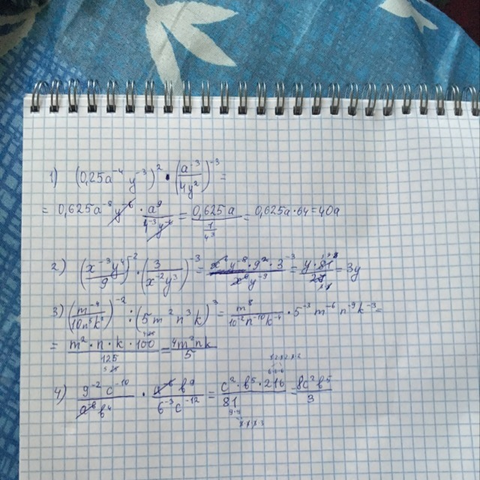 1) (0,25a⁻⁴ y⁻³)² · (a⁻³/4y²)⁻³ =
= 0,625a⁻⁸ y⁻⁶ · a⁹/4⁻³y⁻⁶ = 0,625a/(1/4³) = 0,625a·64 = 40a
2) (x⁻³y⁴/9)⁻² · (3/x⁻²y³)⁻³ = x⁶y⁻⁸·9²·3⁻³/x⁶y⁻⁹ = y·81/27 = 3y
3) (m⁻⁴/10n⁵k²)⁻² : (5m²n³k)³ = m⁸/10⁻²n⁻¹⁰k⁻⁴ · 5⁻³ m⁻⁶ n⁻⁹ k⁻³ =
= m²·n·k·100/125 = 4m²nk/5
4) 9⁻²c⁻¹⁰/a⁻⁸b⁴ · a⁻⁸b⁹/6⁻³c⁻¹² = c²·b⁵·216/81 = 8c²b⁵/3